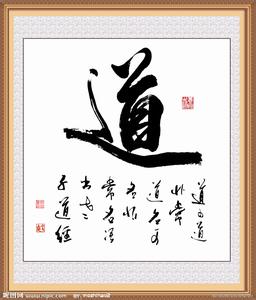 道
道可道
非常
道名可
名非
常名语
老
子道經
昵图网 www.nipic.com